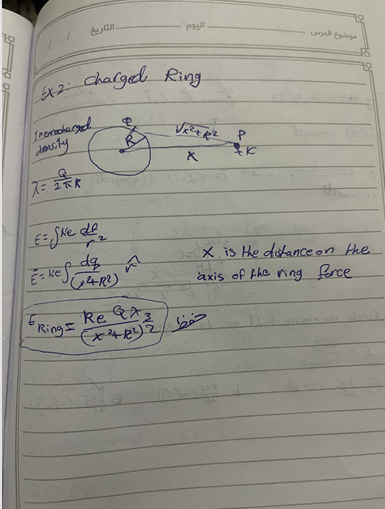 موضوع الدرس اليوم التاريخ
/ /
Ex.2: Charged Ring
charged
density
Q
R
√x²+R²
P
x
λ = Q/2πR
E = ∫ke dq/r²
E⃗ = ke ∫ dq/(x²+R²) r̂
x is the distance on the
axis of the ring force
E Ring = ke Q x/(x²+R²)^3/2 حفظ